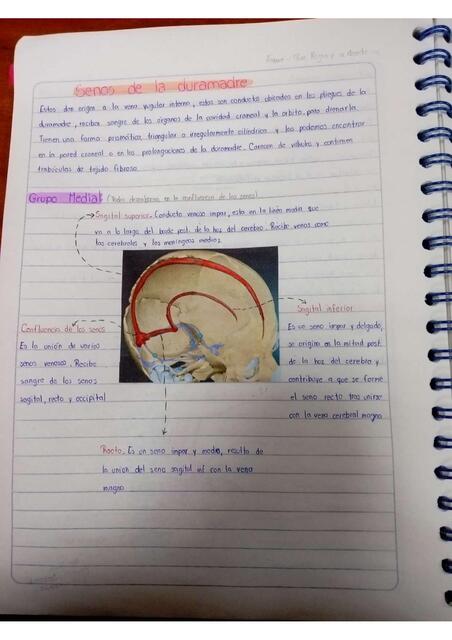 Senos de la duramadre
Estos dan origen a la vena yugular interna, estos son conductos ubicados en los pliegues de la
duramadre, reciben sangre de los órganos de la cavidad craneal y la orbita, para drenarla.
Tienen una forma prismática, triangular o irregularmente cilíndrica y los podemos encontrar
en la pared craneal o en las prolongaciones de la duramadre. Carecen de válvulas y contienen
trabéculas de tejido fibroso
Grupo Medial (Todos drenan en la confluencia de los senos)
Sagital superior. Conducto venoso impar, esta en la linea media que
va a lo largo del borde post. de la hoz del cerebro. Recibe venas como
las cerebrales y las meníngeas medias.
Confluencia de los senos
Es la unión de varios
senos venosos. Recibe
sangre de los senos
sagital, recto y occipital
Sagital inferior
Es un seno impar y delgado,
se origina en la mitad post.
de la hoz del cerebro y
contribuye a que se forme
el seno recto tras unirse
con la vena cerebral magna
Recto. Es un seno impar y medio, resulta de
la union del seno sagital inf con la vena
magna